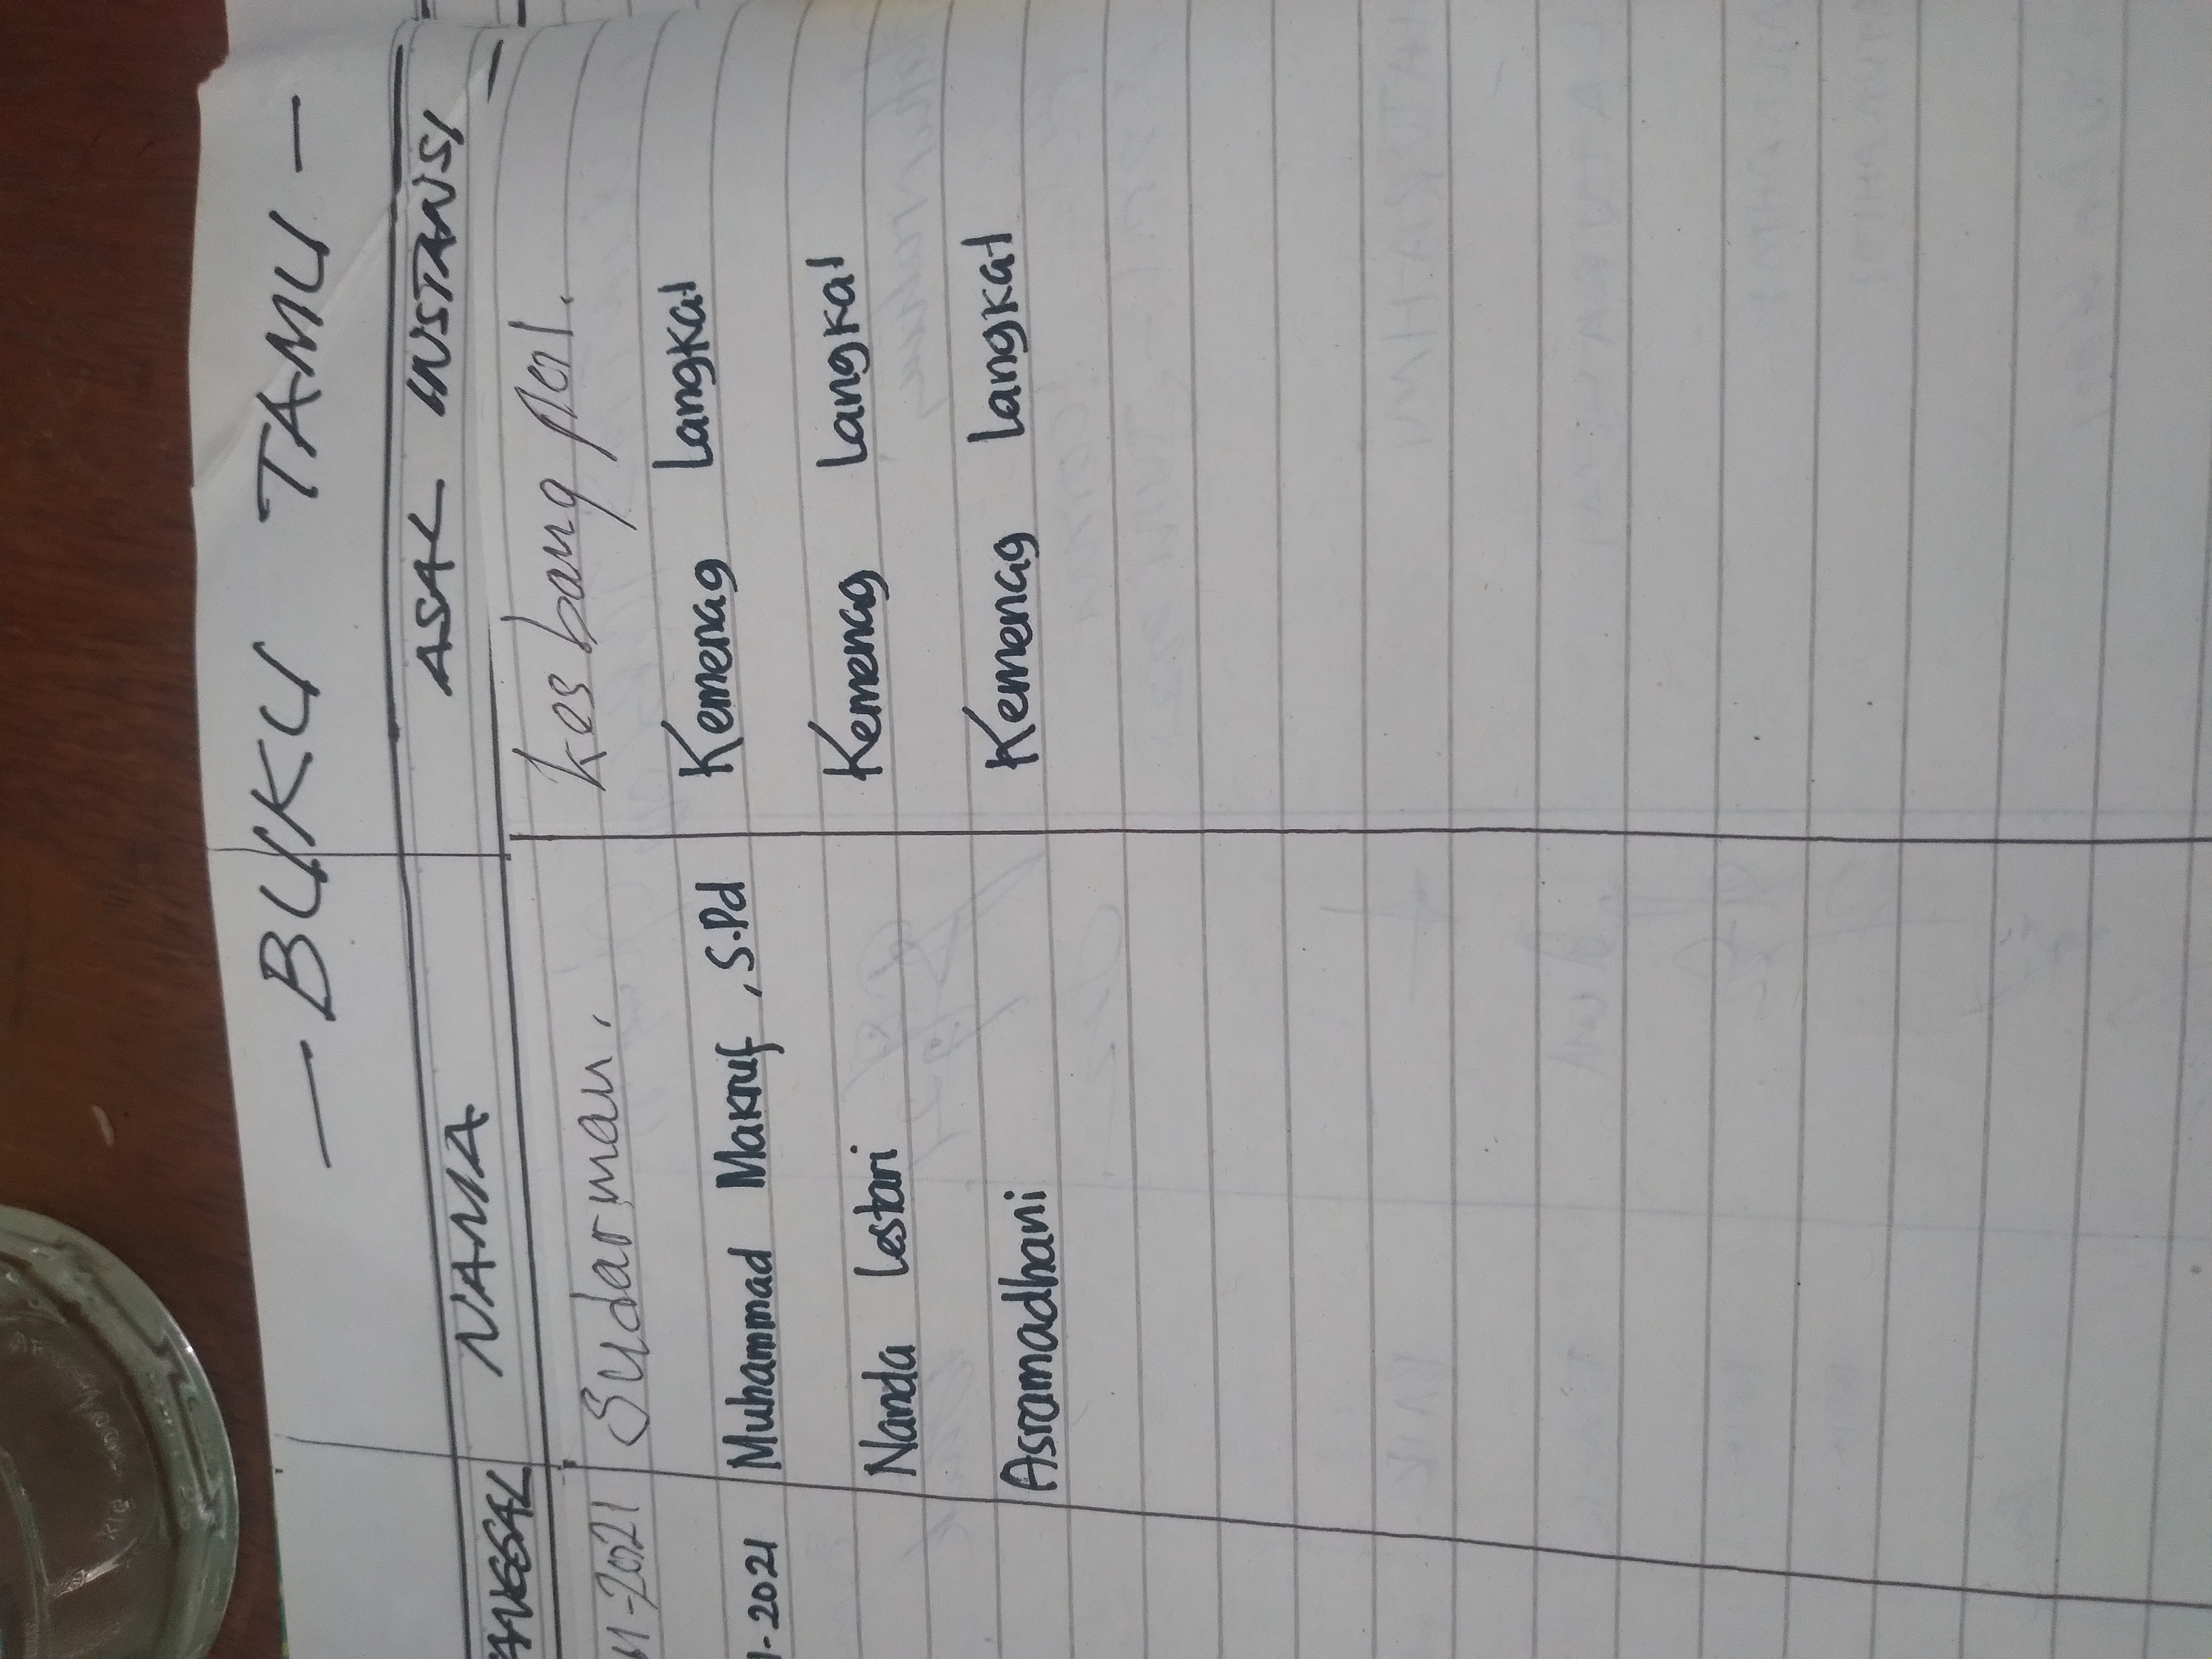 — BUKU TAMU —
TANGGAL NAMA ASAL INSTANSI
11-2021 Sudarman. kesbang pol.
1-2021 Muhammad Makruf, S.Pd Kemenag Langkat
Nanda Lestari Kemenag Langkat
Asramadhani Kemenag Langkat